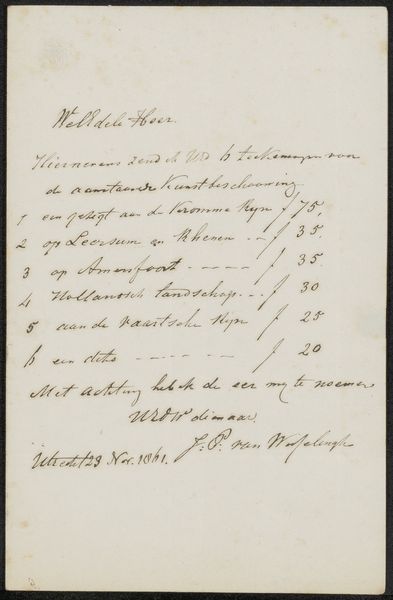 WelEdele Heer.
Hiernevens zend ik UEd 6 teekeningen voor
de aanstaande Kunstbeschouwing
1 een gezigt aan de Kromme Rijn f 75,
2 op Leersum en Rhenen - - f 35.
3 op Amersfoort - - - - - f 35.
4 Hollandsch landschap. - - f 30
5 aan de vaartsche Rijn f 25
6 een dito - - - - - - f 20
Met achting heb ik de eer mij te noemen
UEdW dienaar.
J: P. van
Utrecht 23 Nov. 1861.